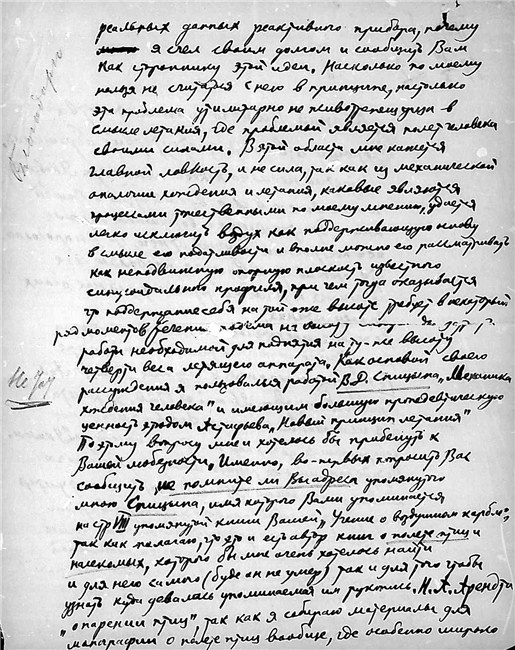 реальных данных реактивного прибора, почему
я счел своим долгом и сообщить Вам
как стороннику этой идеи. Насколько по моему
нельзя не считатся с нею в принципе, настолько
эта проблема утилитарно не животрепещуща в
смысле летания, где проблемой является полет человека
своими силами. В этой области мне кажется
главной ловкость, и не сила, так как из механической
аналогии хождения и летания, каковые являются
процессами тожественными по моему мнению, удается
легко исключить воздух как поддерживающую основу
в смысле его податливости и вполне можно его рассматривать
как неподвижную опорную плоскость известного
синусоидального профиля, при чем тогда оказывается
что поддержание себя на той же высоте требует в некоторый
ряд моментов течении подъема на
работы необходимой для поднятия на ту-же высоту
четверти веса летящего аппарата. Как основой своего
рассуждения я пользовался работой В.Д. Спицына "Механика
хождения человека" и имеющим большую пропедевтическую
ценность этюдом Астафьева "Новый принцип летания"
По этому вопросу мне и хотелось бы прибегнуть к
Вашей любезности. Именно, во-первых попросить Вас
сообщить не помните ли Вы адреса упомянутого
мною Спицына, имя которого Вами упоминается
на стр VIII упомянутой книги Вашей "Учение о воздушном корабле"
так как полагаю, что это и есть автор книг о полете птиц и
насекомых, которого бы мне очень хотелось найти
и для него самого (буде он не умер) так и для того чтобы
узнать куда девалась упоминаемая им рукопись Н.А. Арендта
"о парении птиц" так как я собираю материалы для
монографии о полете птиц вообще, где особенно широко